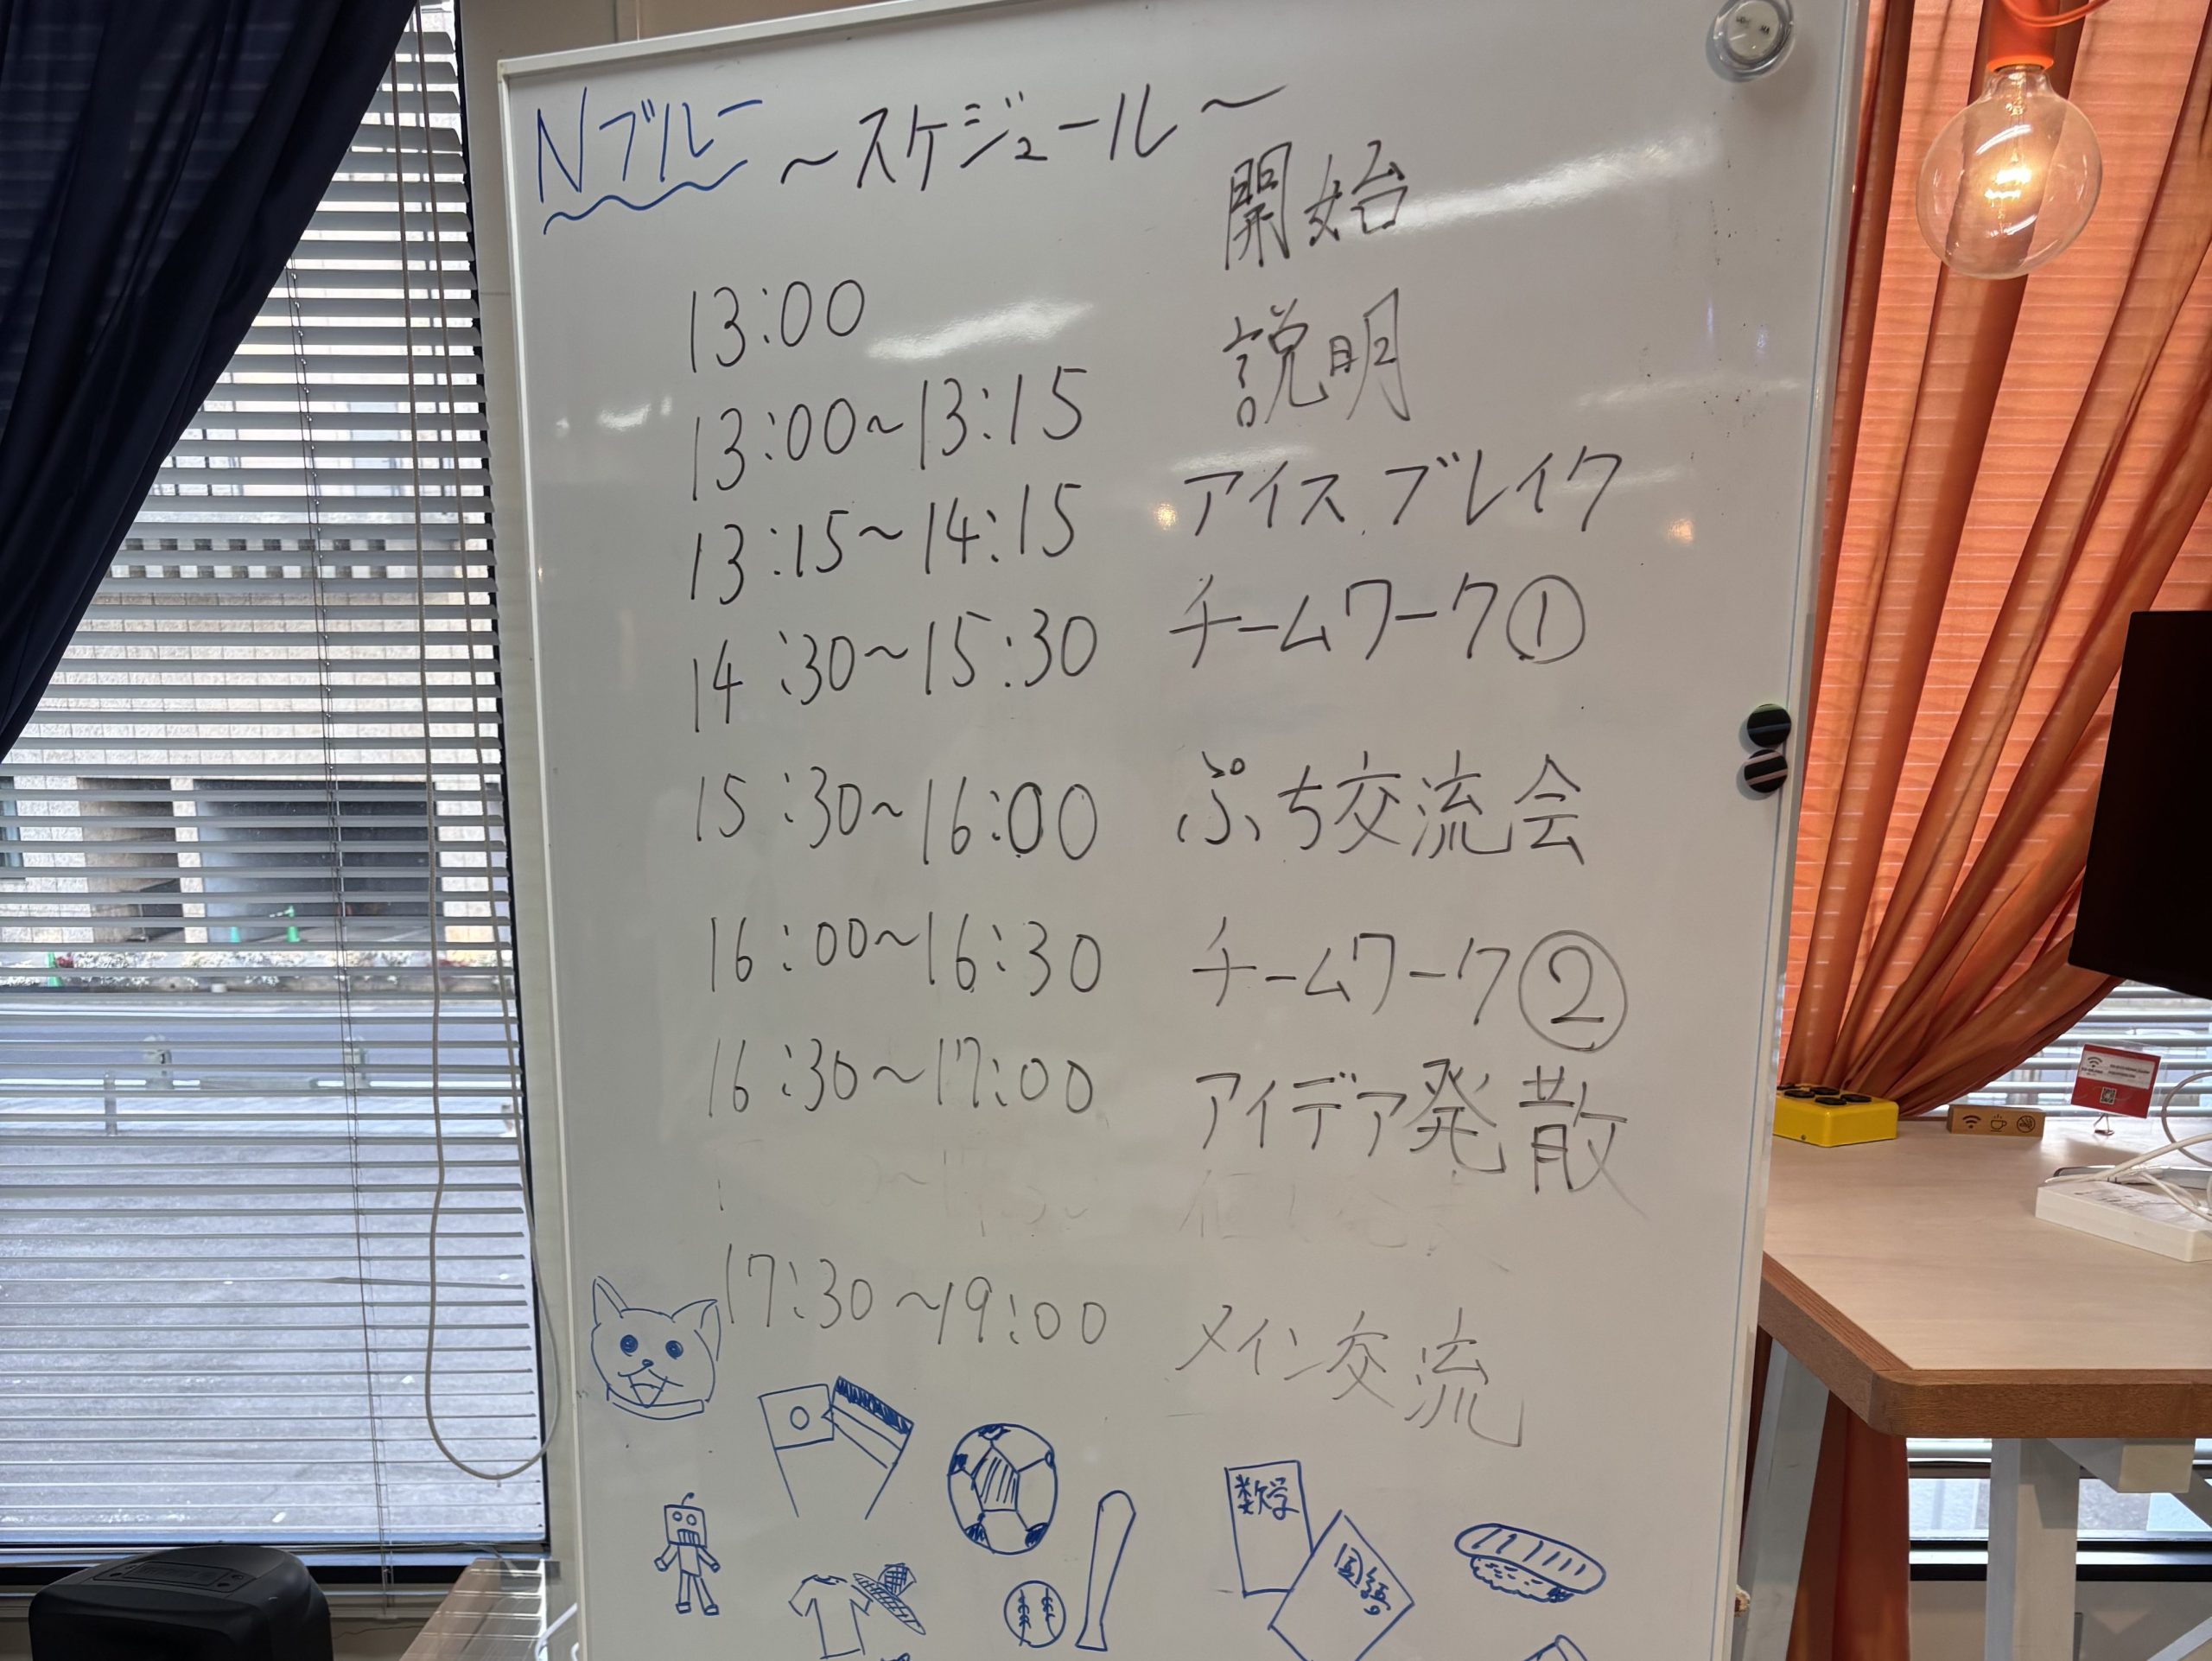 Nブルー ～スケジュール～
13:00 開始
13:00～13:15 説明
13:15～14:15 アイスブレイク
14:30～15:30 チームワーク①
15:30～16:00 ぷち交流会
16:00～16:30 チームワーク②
16:30～17:00 アイデア発散
17:30～19:00 メイン交流
数学
国語